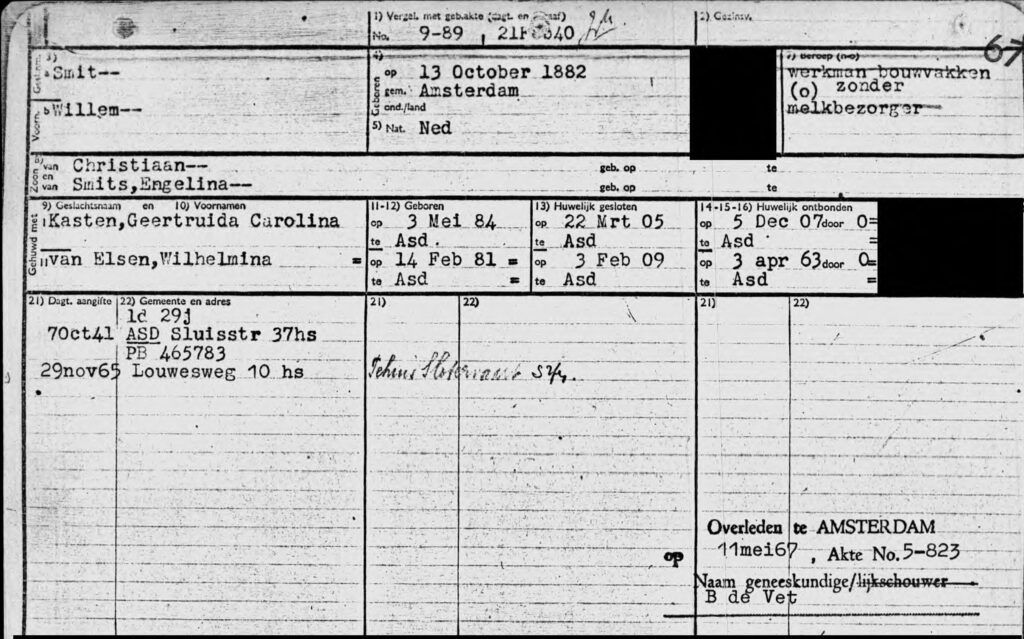 1) Vergel. met geb.akte (dagt. en
2) Gezinsv.
No. 9-89, 21F 640
67
3)
Geslachtsn. a Smit--
Voorn. b Willem--
4)
Geboren
op 13 October 1882
gem. Amsterdam
ond./land
5) Nat. Ned
7) Beroep (n-o)
werkman bouwvakken
(o) zonder
melkbezorger
8)
Zoon
van Christiaan-- geb. op te
en
van Smits,Engelina-- geb. op te
Gehuwd met
9) Geslachtsnaam en 10) Voornamen
I Kasten,Geertruida Carolina
II van Elsen,Wilhelmina =
11-12) Geboren
op 3 Mei 84
te Asd.
op 14 Feb 81 =
te Asd =
13) Huwelijk gesloten
op 22 Mrt 05
te Asd
op 3 Feb 09
te Asd
14-15-16) Huwelijk ontbonden
op 5 Dec 07 door 0=
te Asd =
op 3 apr 63 door 0=
te Asd =
21) Dagt. aangifte 22) Gemeente en adres
21) 22)
21) 22)
ld 29j
7Oct41 ASD Sluisstr 37hs
PB 465783
29nov65 Louwesweg 10 hs
Slotervaart
Overleden te AMSTERDAM
op 11mei67, Akte No. 5-823
Naam geneeskundige/lijkschouwer
B de Vet